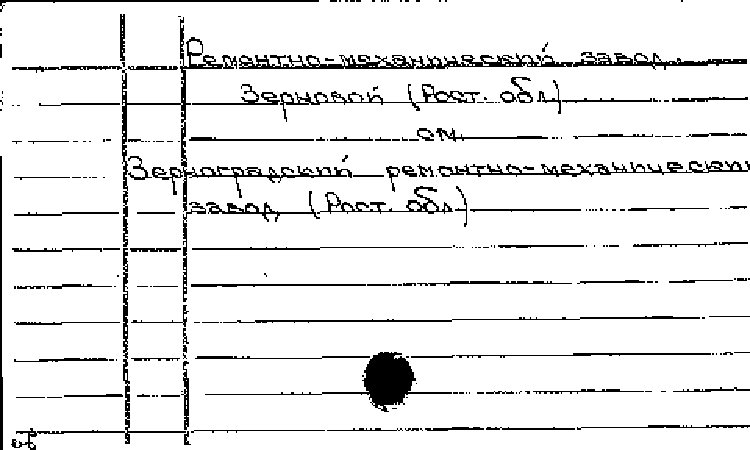 Ремонтно-механический завод.
Зерновой (Рост. обл.)
см.
Зерноградский ремонтно-механический
завод (Рост. обл.)